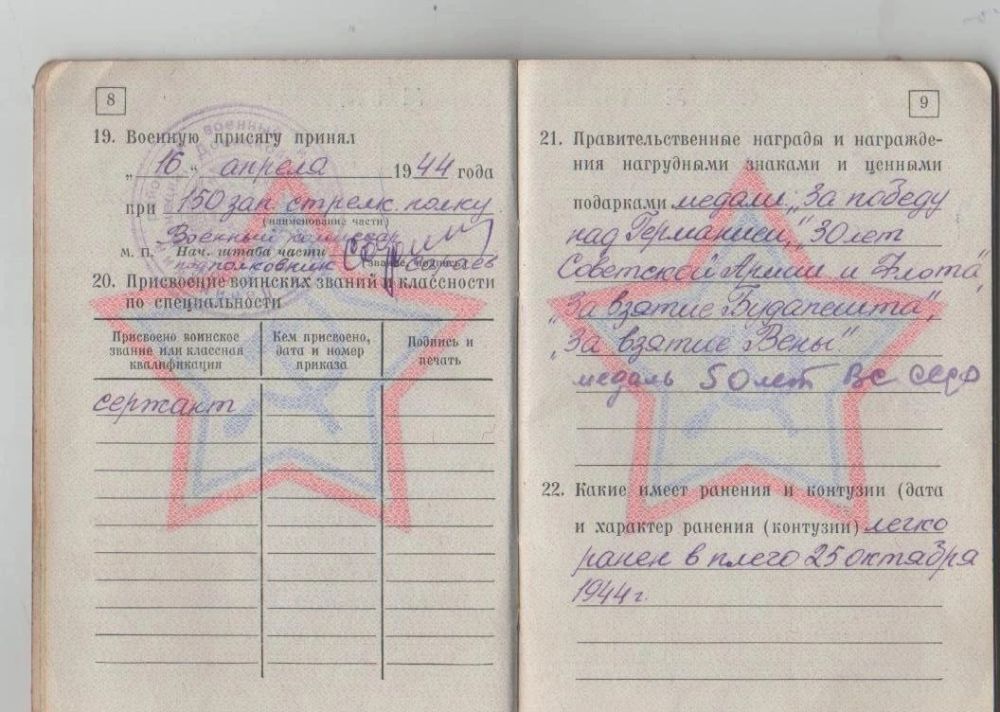 8
19. Военную присягу принял
„16“ апреля 1944 года
при 150 зап. стрелк. полку
(наименование части)
Военный комиссар
М. П. Нач. штаба части
подполковник
20. Присвоение воинских званий и классности
по специальности
Присвоено воинское звание или классная квалификация
Кем присвоено, дата и номер приказа
Подпись и печать
сержант
9
21. Правительственные награды и награжде-
ния нагрудными знаками и ценными
подарками медали: „За победу
над Германией“, „30 лет
Советской Армии и Флота“,
„За взятие Будапешта“,
„За взятие Вены“
медаль 50 лет ВС СССР
22. Какие имеет ранения и контузии (дата
и характер ранения (контузии) легко
ранен в плечо 25 октября
1944 г.